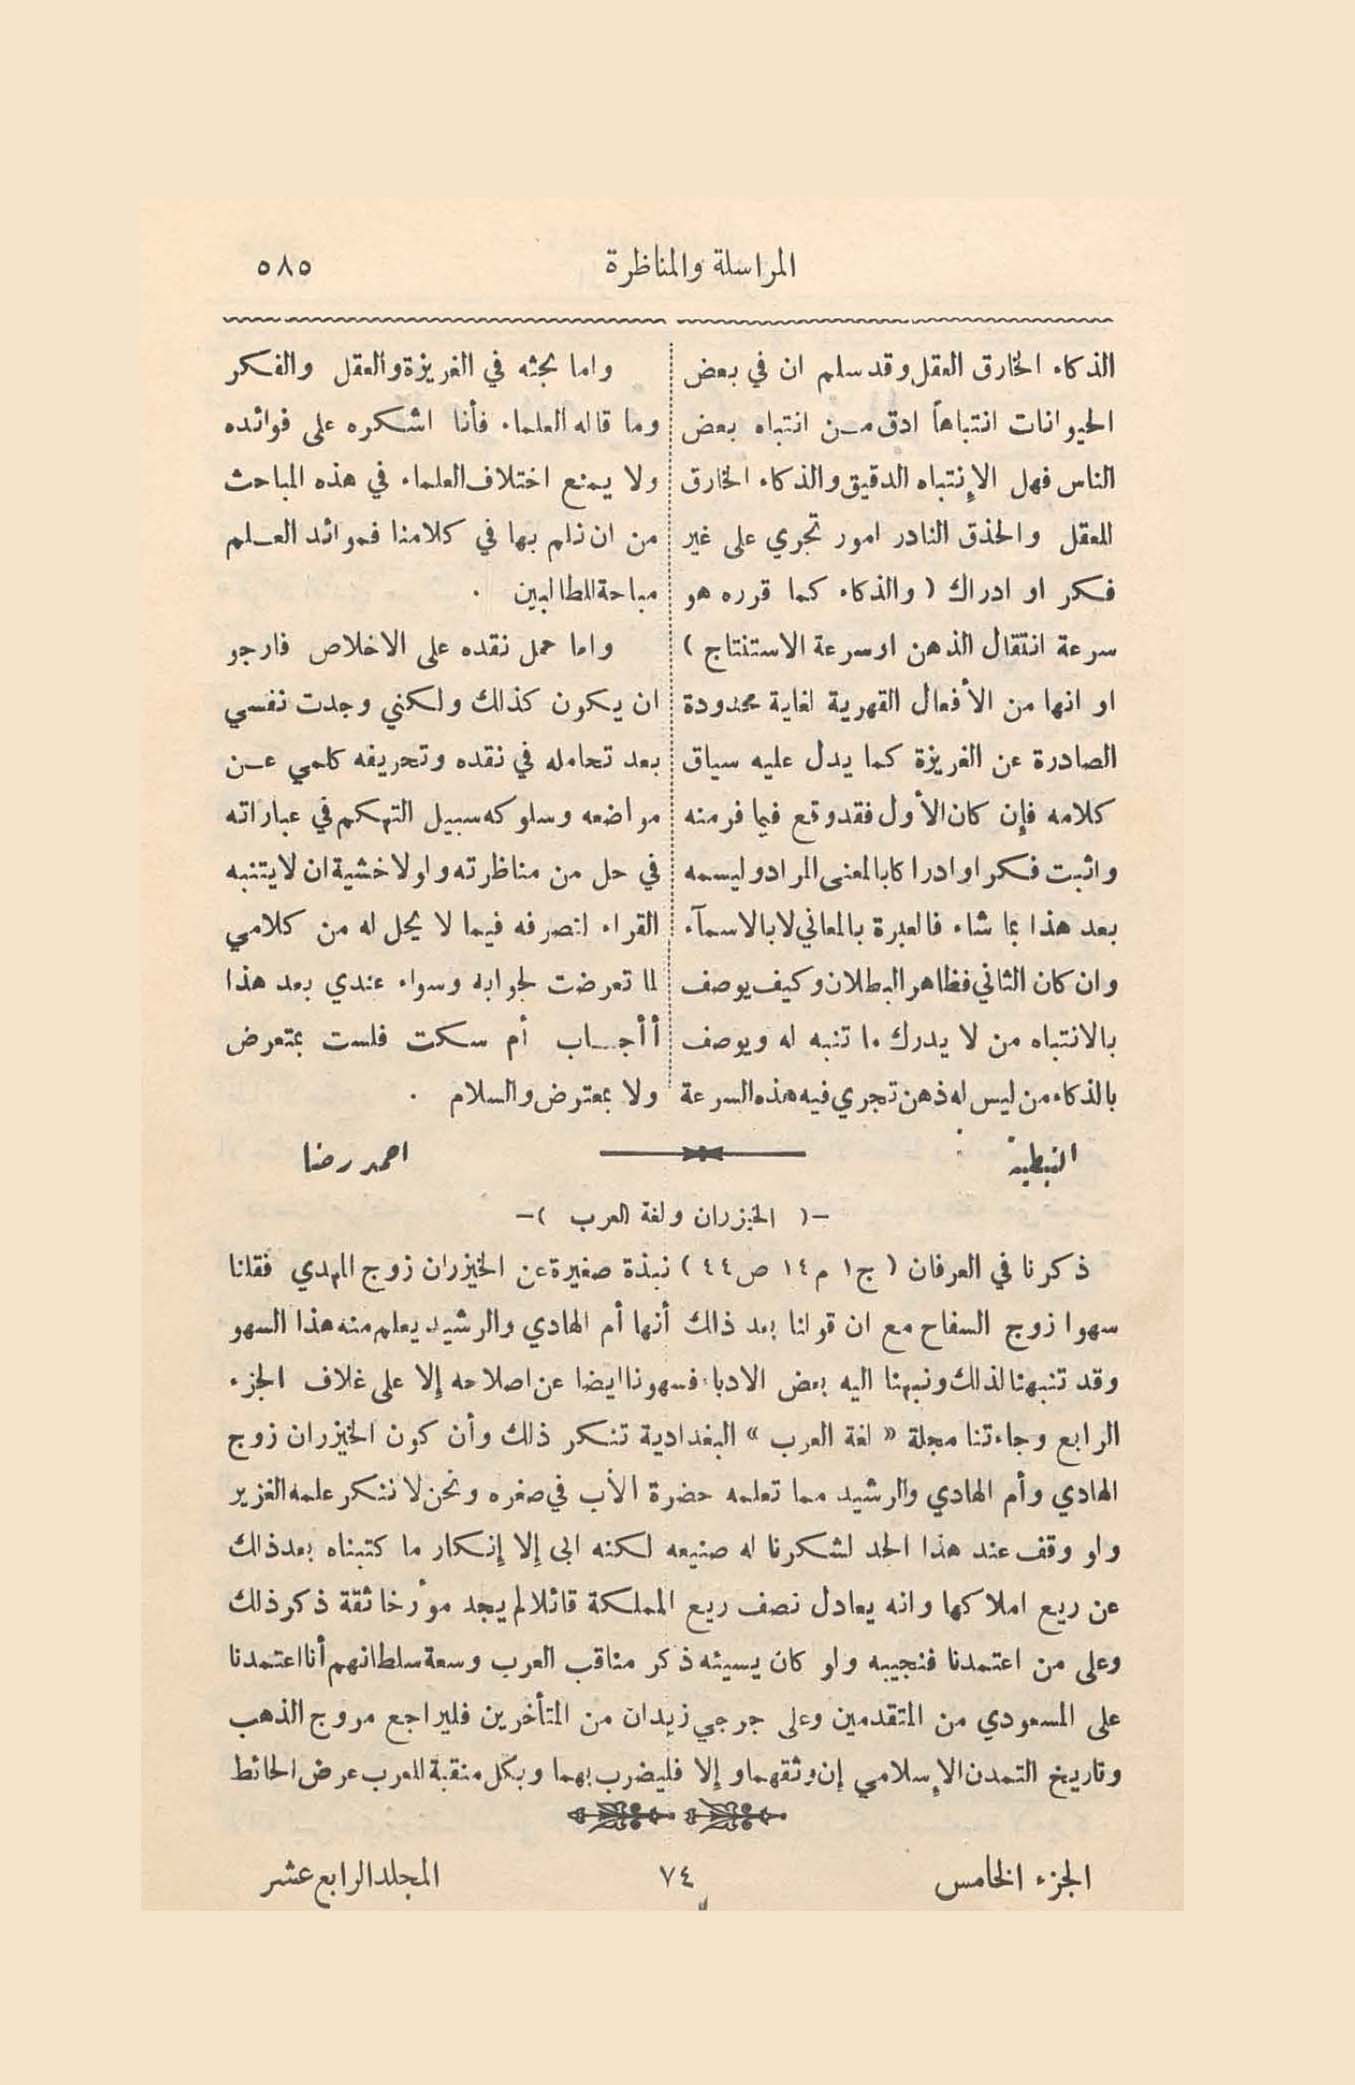 المراسلة والمناظرة
٥٨٥
الذكاء الخارق العقل وقد سلم ان في بعض
الحيوانات انتباهاً ادق من انتباه بعض
الناس فهل الإنتباه الدقيق والذكاء الخارق
للعقل والحذق النادر امور تجري على غير
فكر او ادراك ( والذكاء كما قرره هو
سرعة انتقال الذهن او سرعة الاستنتاج )
او انها من الأفعال القهرية لغاية محدودة
الصادرة عن الغريزة كما يدل عليه سياق
كلامه فإن كان الأول فقد وقع فيما فر منه
واثبت فكرا وادراكا بالمعنى المراد وليسمه
بعد هذا بما شاء فالعبرة بالمعاني لا بالاسمآء
وان كان الثاني فظاهر البطلان وكيف يوصف
بالانتباه من لا يدرك ما تنبه له ويوصف
بالذكاء من ليس له ذهن تجري فيه هذه السرعة
واما بحثه في الغريزة والعقل والفكر
وما قاله العلماء فأنا اشكره على فوائده
ولا يمنع اختلاف العلماء في هذه المباحث
من ان نلم بها في كلامنا فموائد العلم
مباحة للطالبين .
واما حمل نقده على الاخلاص فارجو
ان يكون كذلك ولكني وجدت نفسي
بعد تحامله في نقده وتحريفه كلمي عن
مواضعه وسلوكه سبيل التهكم في عباراته
في حل من مناظرته ولولا خشية ان لا يتنبه
القراء لتصرفه فيما لا يحل له من كلامي
لما تعرضت لجوابه وسواء عندي بعد هذا
أأجاب أم سكت فلست بمتعرض
ولا بمعترض والسلام .
النبطية : احمد رضا
–( الخيزران ولغة العرب )–
ذكرنا في العرفان ( ج١ م١٤ ص٤٤ ) نبذة صغيرة عن الخيزران زوج المهدي فقلنا
سهوا زوج السفاح مع ان قولنا بعد ذلك أنها أم الهادي والرشيد يعلم منه هذا السهو
وقد تنبهنا لذلك ونبهنا اليه بعض الادباء فسهونا ايضا عن اصلاحه إلا على غلاف الجزء
الرابع وجاءتنا مجلة « لغة العرب » البغدادية تنكر ذلك وأن كون الخيزران زوج
الهادي وأم الهادي والرشيد مما تعلمه حضرة الأب في صغره ونحن لا ننكر علمه الغزير
ولو وقف عند هذا الحد لشكرنا له صنيعه لكنه ابى إلا إنكار ما كتبناه بعد ذلك
عن ريع املاكها وانه يعادل نصف ريع المملكة قائلا لم يجد مؤرخا ثقة ذكر ذلك
وعلى من اعتمدنا فنجيبه ولو كان يسيئه ذكر مناقب العرب وسعة سلطانهم أنا اعتمدنا
على المسعودي من المتقدمين وعلى جرجي زيدان من المتأخرين فليراجع مروج الذهب
وتاريخ التمدن الإسلامي إن وثقهما وإلا فليضرب بهما وبكل منقبة للعرب عرض الحائط
الجزء الخامس ٧٤ المجلد الرابع عشر